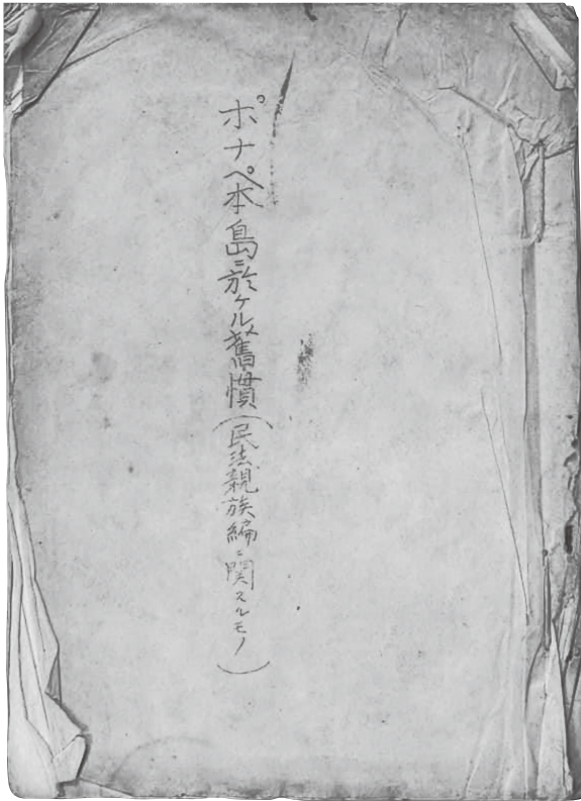 ポナペ本島ニ於ケル舊慣(民法親族編ニ関スルモノ)